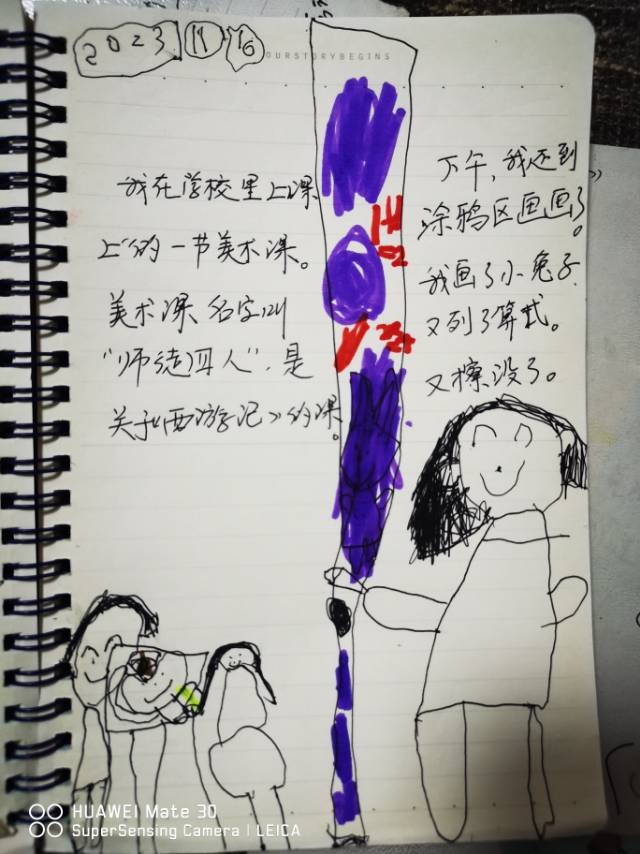 2023 11 16
OURSTORYBEGINS
我在学校里上课
上的一节美术课。
美术课名字叫
“师徒四人”，是
关于《西游记》的课。
下午，我还到
涂鸦区画画了。
我画了小兔子
又列了算式。
又擦没了。
HUAWEI Mate 30
SuperSensing Camera | LEICA